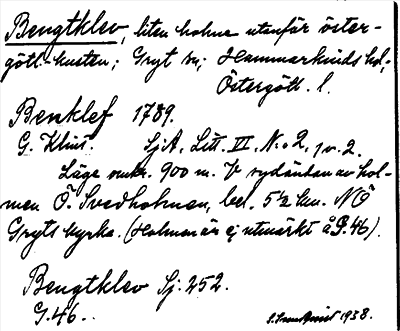 Bengtklev, liten holme utanför öster-
götl-kusten; Gryt sn; Hammarkinds hd;
Östergötl. l.
Benklef 1789.
G. Klint. SjA. Litt. VI. No 2, 1 v. 2.
Läge omkr. 900 m. V sydändan av hol-
men Ö. Svedholmen, bel. 5½ km. NÖ
Gryts kyrka. (Holmen är ej utmärkt å G. 46).
Bengtklev Sj. 252.
G. 46.
1938.